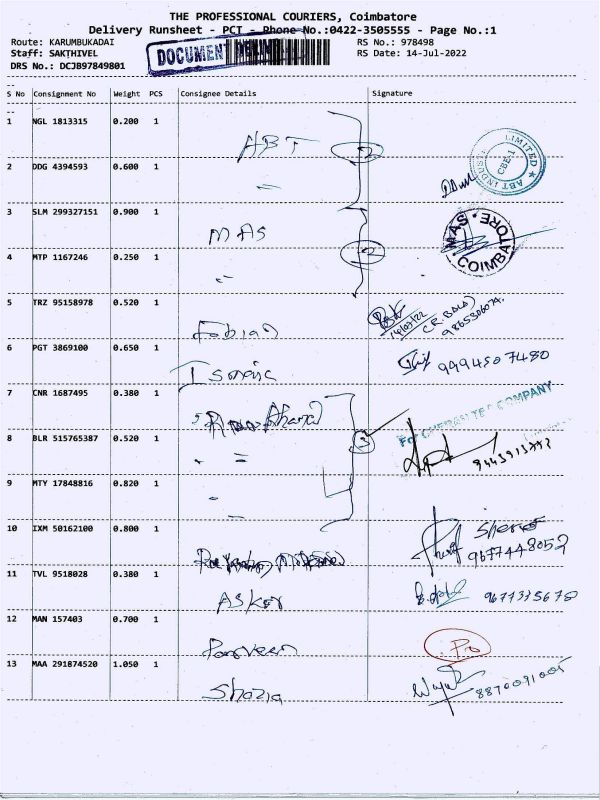 THE PROFESSIONAL COURIERS, Coimbatore
Delivery Runsheet - PCT - Phone No.:0422-3505555 - Page No.:1
Route: KARUMBUKADAI RS No.: 978498
Staff: SAKTHIVEL DOCUMENT RS Date: 14-Jul-2022
DRS No.: DCJB97849801
S No Consignment No Weight PCS Consignee Details Signature
1 NGL 1813315 0.200 1 ABT 2 ABT INDUST LIMITED CBE-1
2 DDG 4394593 0.600 1 "
3 SLM 299327151 0.900 1 MAS 2 MAS COIMBATORE
4 MTP 1167246 0.250 1 "
5 TRZ 95158978 0.520 1 Fabian 14/07/22
6 PGT 3869100 0.650 1 9994507480
7 CNR 1687495 0.380 1 3 COMPANY
8 BLR 515765387 0.520 1 "
9 MTY 17848816 0.820 1 "
10 IXM 50162100 0.800 1 9677448052
11 TVL 9518028 0.380 1 Asker
12 MAN 157403 0.700 1 Parveen
13 MAA 291874520 1.050 1 Shazia 8870091005